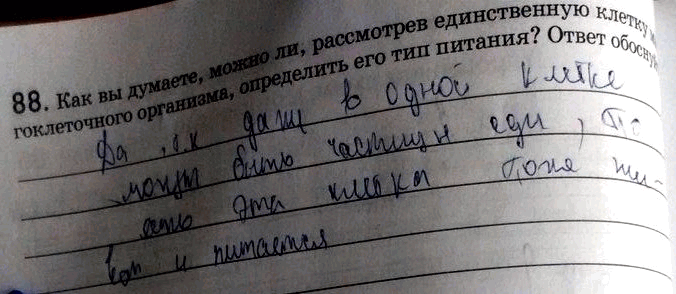 88. Как вы думаете, можно ли, рассмотрев единственную клетку м
гоклеточного организма, определить его тип питания? Ответ обосну
Да, т.к даже в одной клетке
могут быть частицы еды, то
есть эта клетка тоже жи-
вая и питается